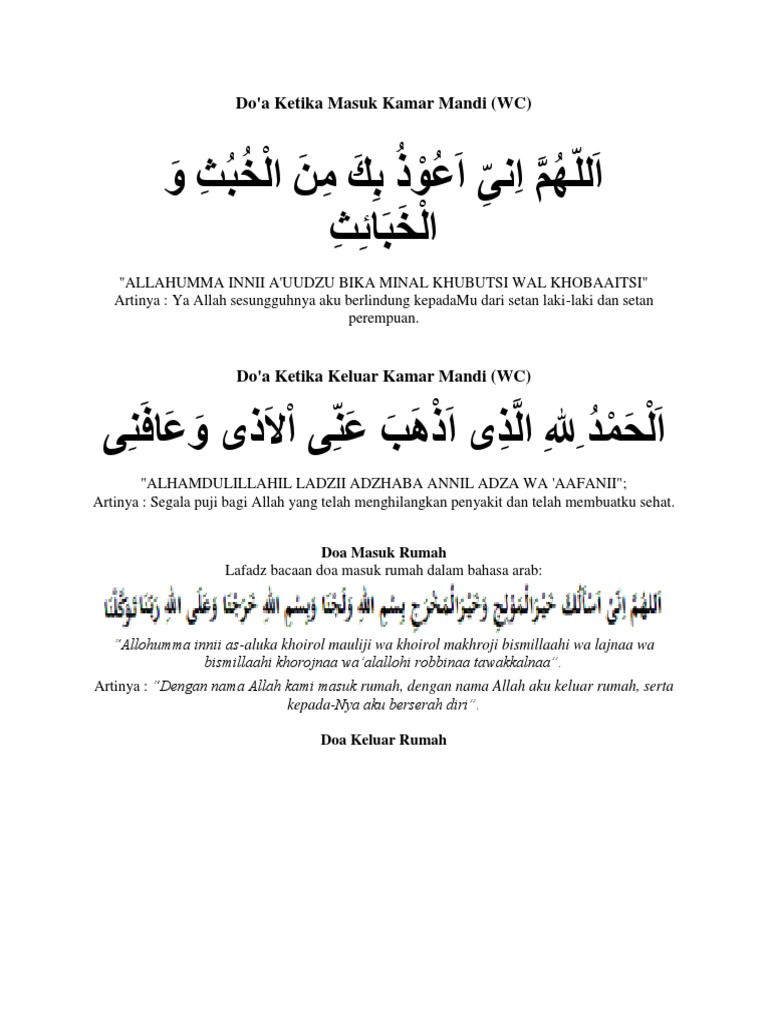 Do'a Ketika Masuk Kamar Mandi (WC)
اَللّهُمَّ اِنیِّ اَعُوْذُ بِكَ مِنَ الْخُبُثِ وَ
الْخَبَائِثِ
"ALLAHUMMA INNII A'UUDZU BIKA MINAL KHUBUTSI WAL KHOBAAITSI"
Artinya : Ya Allah sesungguhnya aku berlindung kepadaMu dari setan laki-laki dan setan
perempuan.
Do'a Ketika Keluar Kamar Mandi (WC)
اَلْحَمْدُ ِللهِ الَّذِى اَذْهَبَ عَنِّى اْلاَذى وَعَافَنِى
"ALHAMDULILLAHIL LADZII ADZHABA ANNIL ADZA WA 'AAFANII";
Artinya : Segala puji bagi Allah yang telah menghilangkan penyakit dan telah membuatku sehat.
Doa Masuk Rumah
Lafadz bacaan doa masuk rumah dalam bahasa arab:
اَللهُمَّ اِنِّيْ اَسْأَلُكَ خَيْرَالْمَوْلِجِ وَخَيْرَالْمَخْرَجِ بِسْمِ اللهِ وَلَجْنَا وَبِسْمِ اللهِ خَرَجْنَا وَعَلَى اللهِ رَبِّنَا تَوَكَّلْنَا
“Allohumma innii as-aluka khoirol mauliji wa khoirol makhroji bismillaahi wa lajnaa wa
bismillaahi khorojnaa wa‘alallohi robbinaa tawakkalnaa“.
Artinya : “Dengan nama Allah kami masuk rumah, dengan nama Allah aku keluar rumah, serta
kepada-Nya aku berserah diri“.
Doa Keluar Rumah